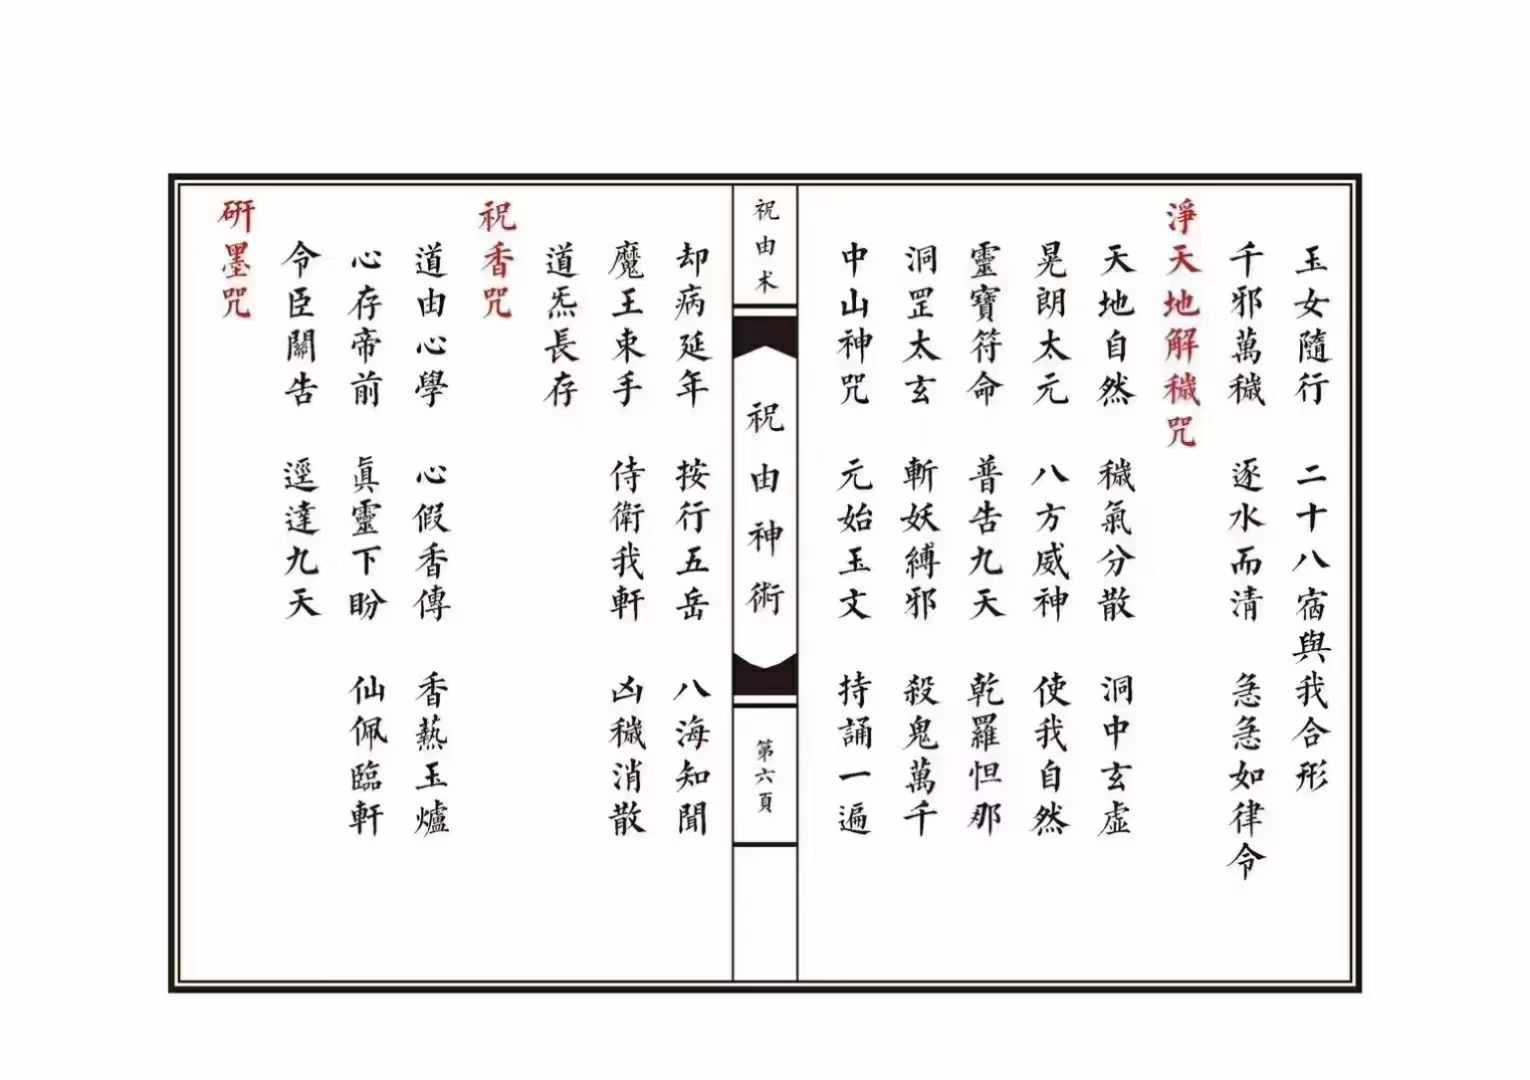 玉女隨行 二十八宿與我合形
千邪萬穢 逐水而清 急急如律令
淨天地解穢咒
天地自然 穢氣分散 洞中玄虛
晃朗太元 八方威神 使我自然
靈寶符命 普告九天 乾羅怛那
洞罡太玄 斬妖縛邪 殺鬼萬千
中山神咒 元始玉文 持誦一遍
祝由术
祝由神術
第六頁
却病延年 按行五岳 八海知聞
魔王束手 侍衛我軒 凶穢消散
道炁長存
祝香咒
道由心學 心假香傳 香爇玉爐
心存帝前 眞靈下盼 仙佩臨軒
令臣關告 逕達九天
硏墨咒